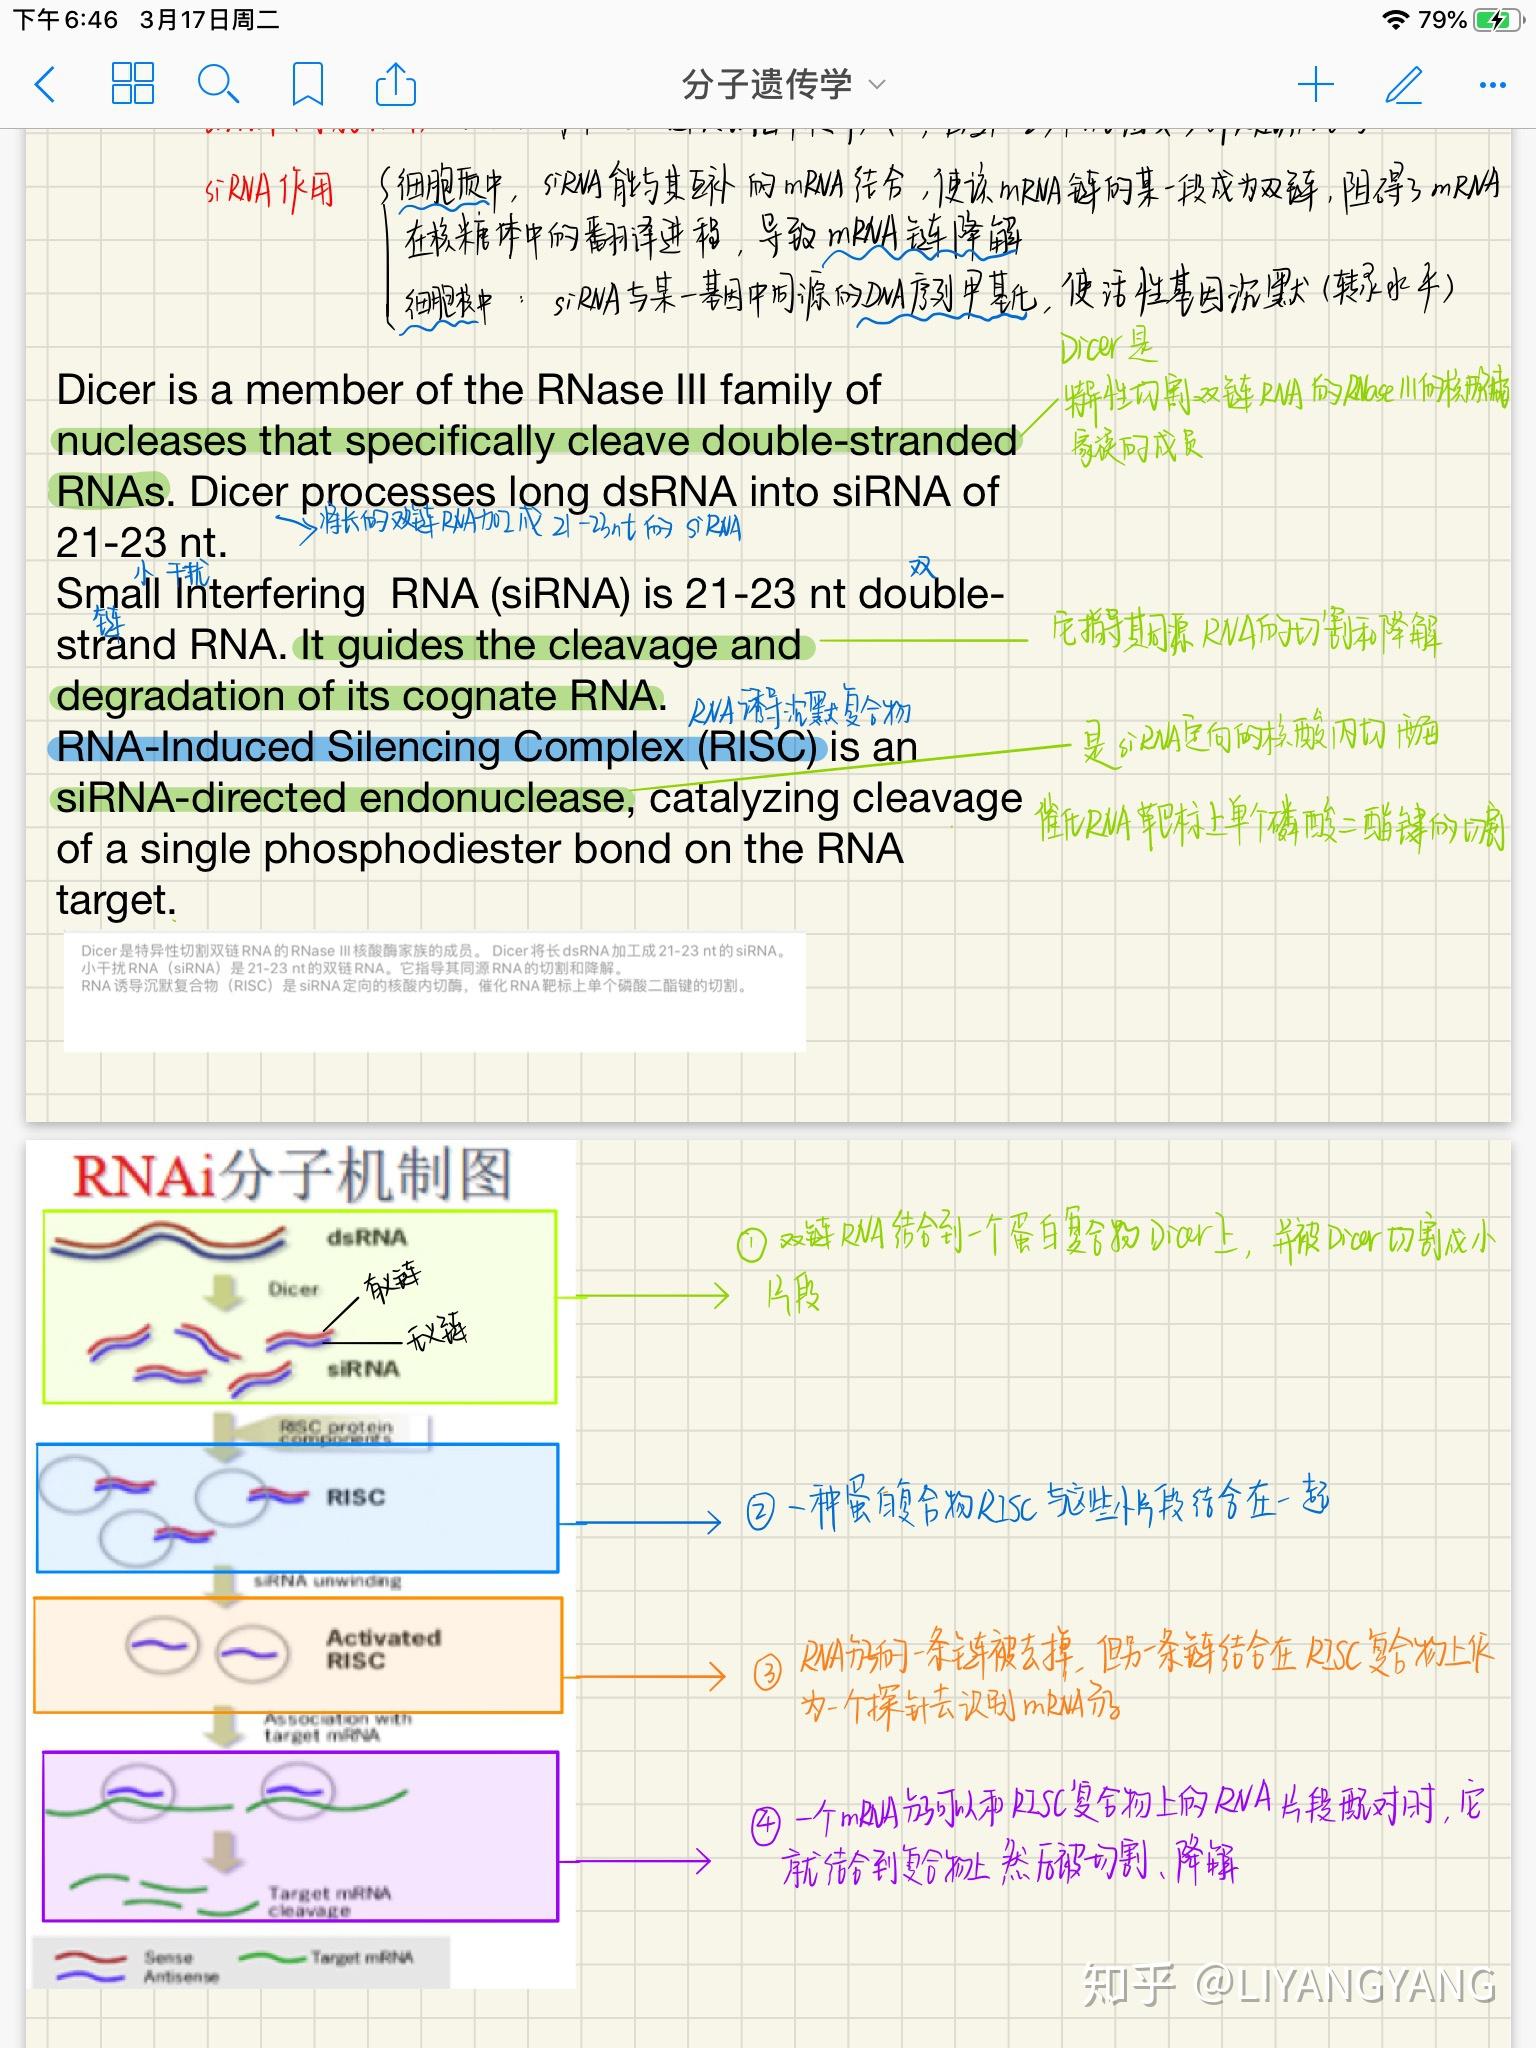 下午6:46 3月17日周二
79%
分子遗传学
siRNA作用
细胞质中，siRNA能与其互补的mRNA结合，使该mRNA链的某一段成为双链，阻碍了mRNA
在核糖体中的翻译进程，导致mRNA链降解
细胞核中：siRNA与某一基因中同源的DNA序列甲基化，使活性基因沉默（转录水平）
Dicer是
特异性切割双链RNA的RNase III的核酸酶
家族的成员
Dicer is a member of the RNase III family of
nucleases that specifically cleave double-stranded
RNAs. Dicer processes long dsRNA into siRNA of
将长的双链RNA加工成21-23nt的siRNA
21-23 nt.
小 干扰
双
Small Interfering RNA (siRNA) is 21-23 nt double-
链
strand RNA. It guides the cleavage and
它指导其同源RNA的切割和降解
degradation of its cognate RNA.
RNA诱导沉默复合物
RNA-Induced Silencing Complex (RISC) is an
是siRNA定向的核酸内切酶
siRNA-directed endonuclease, catalyzing cleavage
催化RNA靶标上单个磷酸二酯键的切割
of a single phosphodiester bond on the RNA
target.
Dicer是特异性切割双链RNA的RNase III核酸酶家族的成员。 Dicer将长dsRNA加工成21-23 nt的siRNA。
小干扰RNA（siRNA）是21-23 nt的双链RNA。它指导其同源RNA的切割和降解。
RNA诱导沉默复合物（RISC）是siRNA定向的核酸内切酶，催化RNA靶标上单个磷酸二酯键的切割。
RNAi分子机制图
dsRNA
Dicer
有义链
无义链
siRNA
①双链RNA结合到一个蛋白复合物Dicer上，并被Dicer切割成小
片段
RISC protein
components
RISC
②一种蛋白复合物RISC与这些小片段结合在一起
siRNA unwinding
Activated
RISC
③RNA分子的一条链被去掉，但另一条链结合在RISC复合物上作
为一个探针去识别mRNA分子
Association with
target mRNA
④一个mRNA分子可以和RISC复合物上的RNA片段配对时，它
就结合到复合物上然后被切割、降解
Target mRNA
cleavage
Sense
Antisense
Target mRNA
知乎 @LIYANGYANG